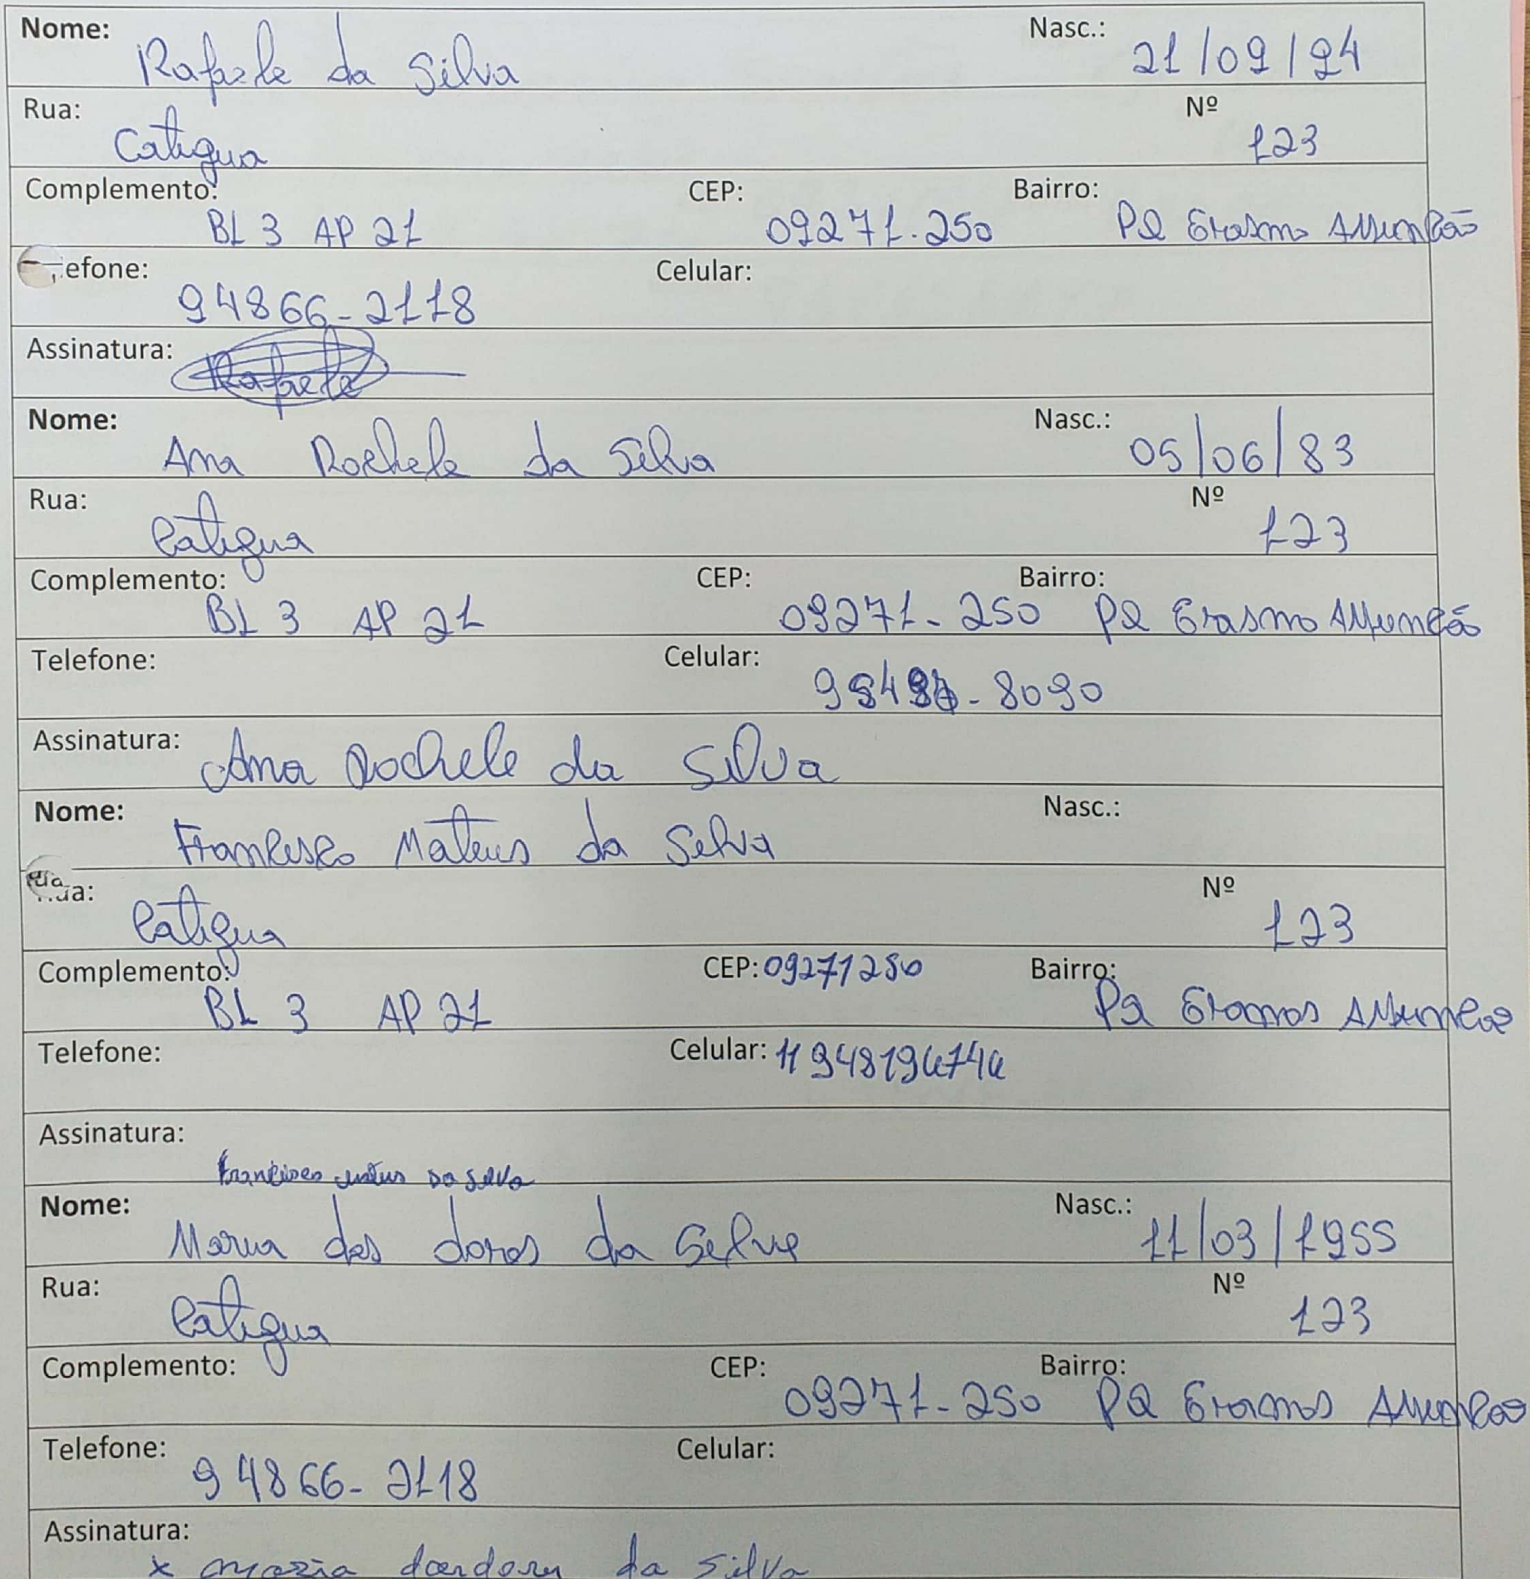 Nome: Rafaele da Silva Nasc.: 21/09/94
Rua: Catigua Nº 123
Complemento: BL 3 AP 21 CEP: 09271.250 Bairro: PQ Erasmo Assunção
efone: 94866-2118 Celular:
Assinatura: Rafaele
Nome: Ana Rochele da Silva Nasc.: 05/06/83
Rua: Catigua Nº 123
Complemento: BL 3 AP 21 CEP: 09271-250 Bairro: PQ Erasmo Assunção
Telefone: Celular:
Assinatura: Ana Rochele da Silva
Nome: Francisco Mateus da Silva Nasc.:
Rua: Catigua Nº 123
Complemento: BL 3 AP 21 CEP: 09271250 Bairro: PQ Eramos Assuncao
Telefone: Celular: 11
Assinatura: Francisco Mateus da Silva
Nome: Maria das dores da Silva Nasc.: 11/03/1955
Rua: Catigua Nº 123
Complemento: CEP: 09271-250 Bairro: PQ Eramos Assuncao
Telefone: 94866-2118 Celular:
Assinatura: x maria da silva